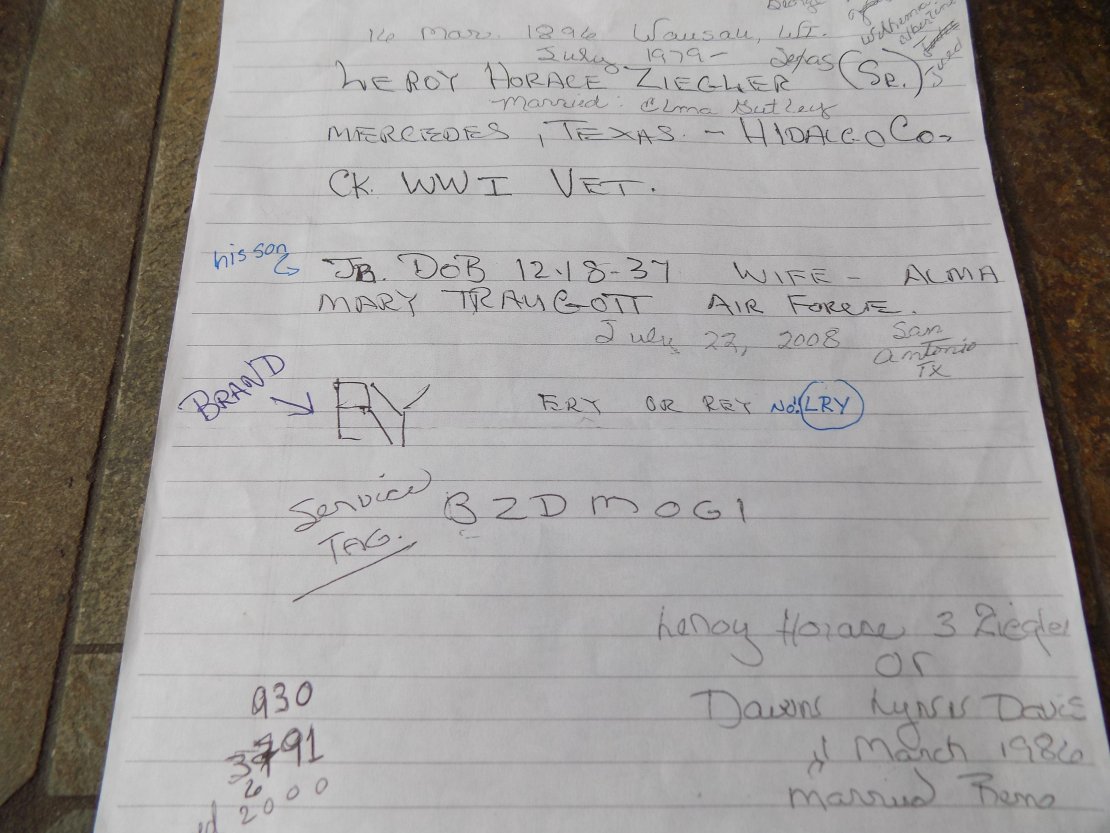 George
16 Mar. 1896 Wausau, WI.
July 1979 - Texas
LEROY HORACE ZIEGLER (SR.)
Married: Elma Butley
MERCEDES, TEXAS. - HIDALGO CO.
CK. WW I VET.
his son
JR. DOB 12-18-37 WIFE - ALMA
MARY TRAUGOTT AIR FORCE.
July 22, 2008 San
Antonio
TX
BRAND RY ERY OR REY No! LRY
Service
TAG. BZDMOG1
Leroy Horace 3 Ziegler
or
Davis
930
March 1986
3791
Married Reno
2000